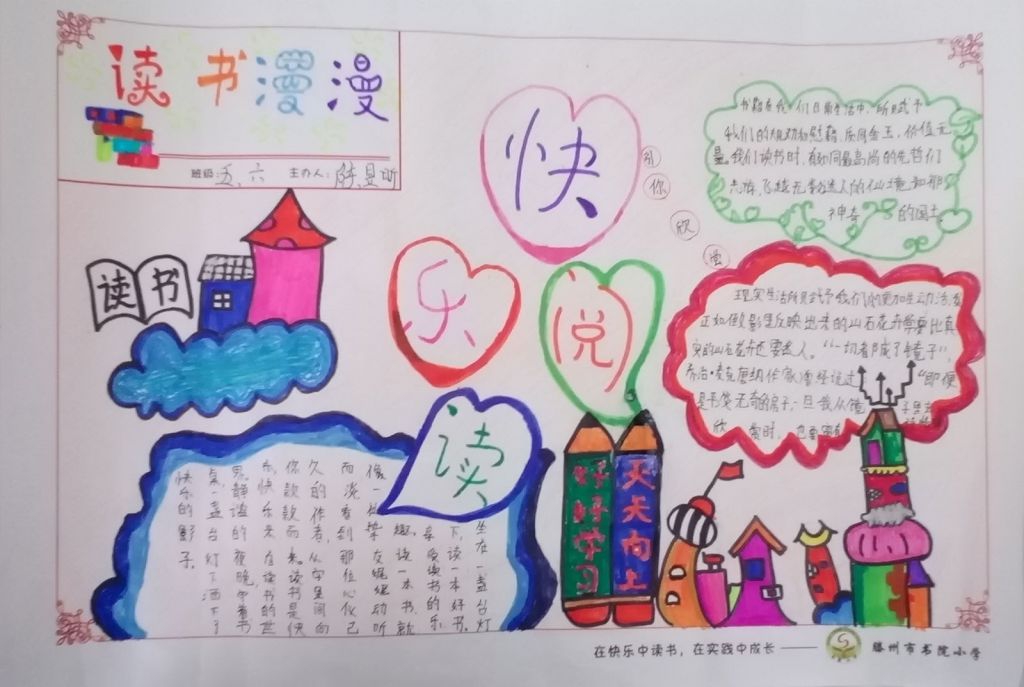 读书漫漫
班级：五、六 主办人：陈
快
乐
悦
读
引你欣
读书
书籍在我们日常生活中，所赋予
我们的规劝和慰藉，质同金玉，价值无
量。我们读书时，有如同最高尚的先哲们
共游，飞越无数迷人的仙境和那
神奇的国土。
现实生活所赋予我们的更加生动活
正如做影里反映出来的山石花卉需要比真
实的山石花卉还要迷人。“一切都成了镜子”，
乔治·麦克唐纳作家曾经说过“即便
是平凡无奇的房子，但我从镜子里去
欣赏时，也
好好学习
天天向上
坐在一盏台灯
下，读一本好书。
享受读书的乐
趣。读一本书，就
像一位挚友娓娓动听
而淡看到那位心仪已
久的作者，从字里间的
你款款而来。读书是快
乐，快乐来自读书的世
界。静谧的夜晚，守着书
桌，一盏台灯下，洒下了
快乐的影子。
在快乐中读书，在实践中成长——
滕州市书院小学